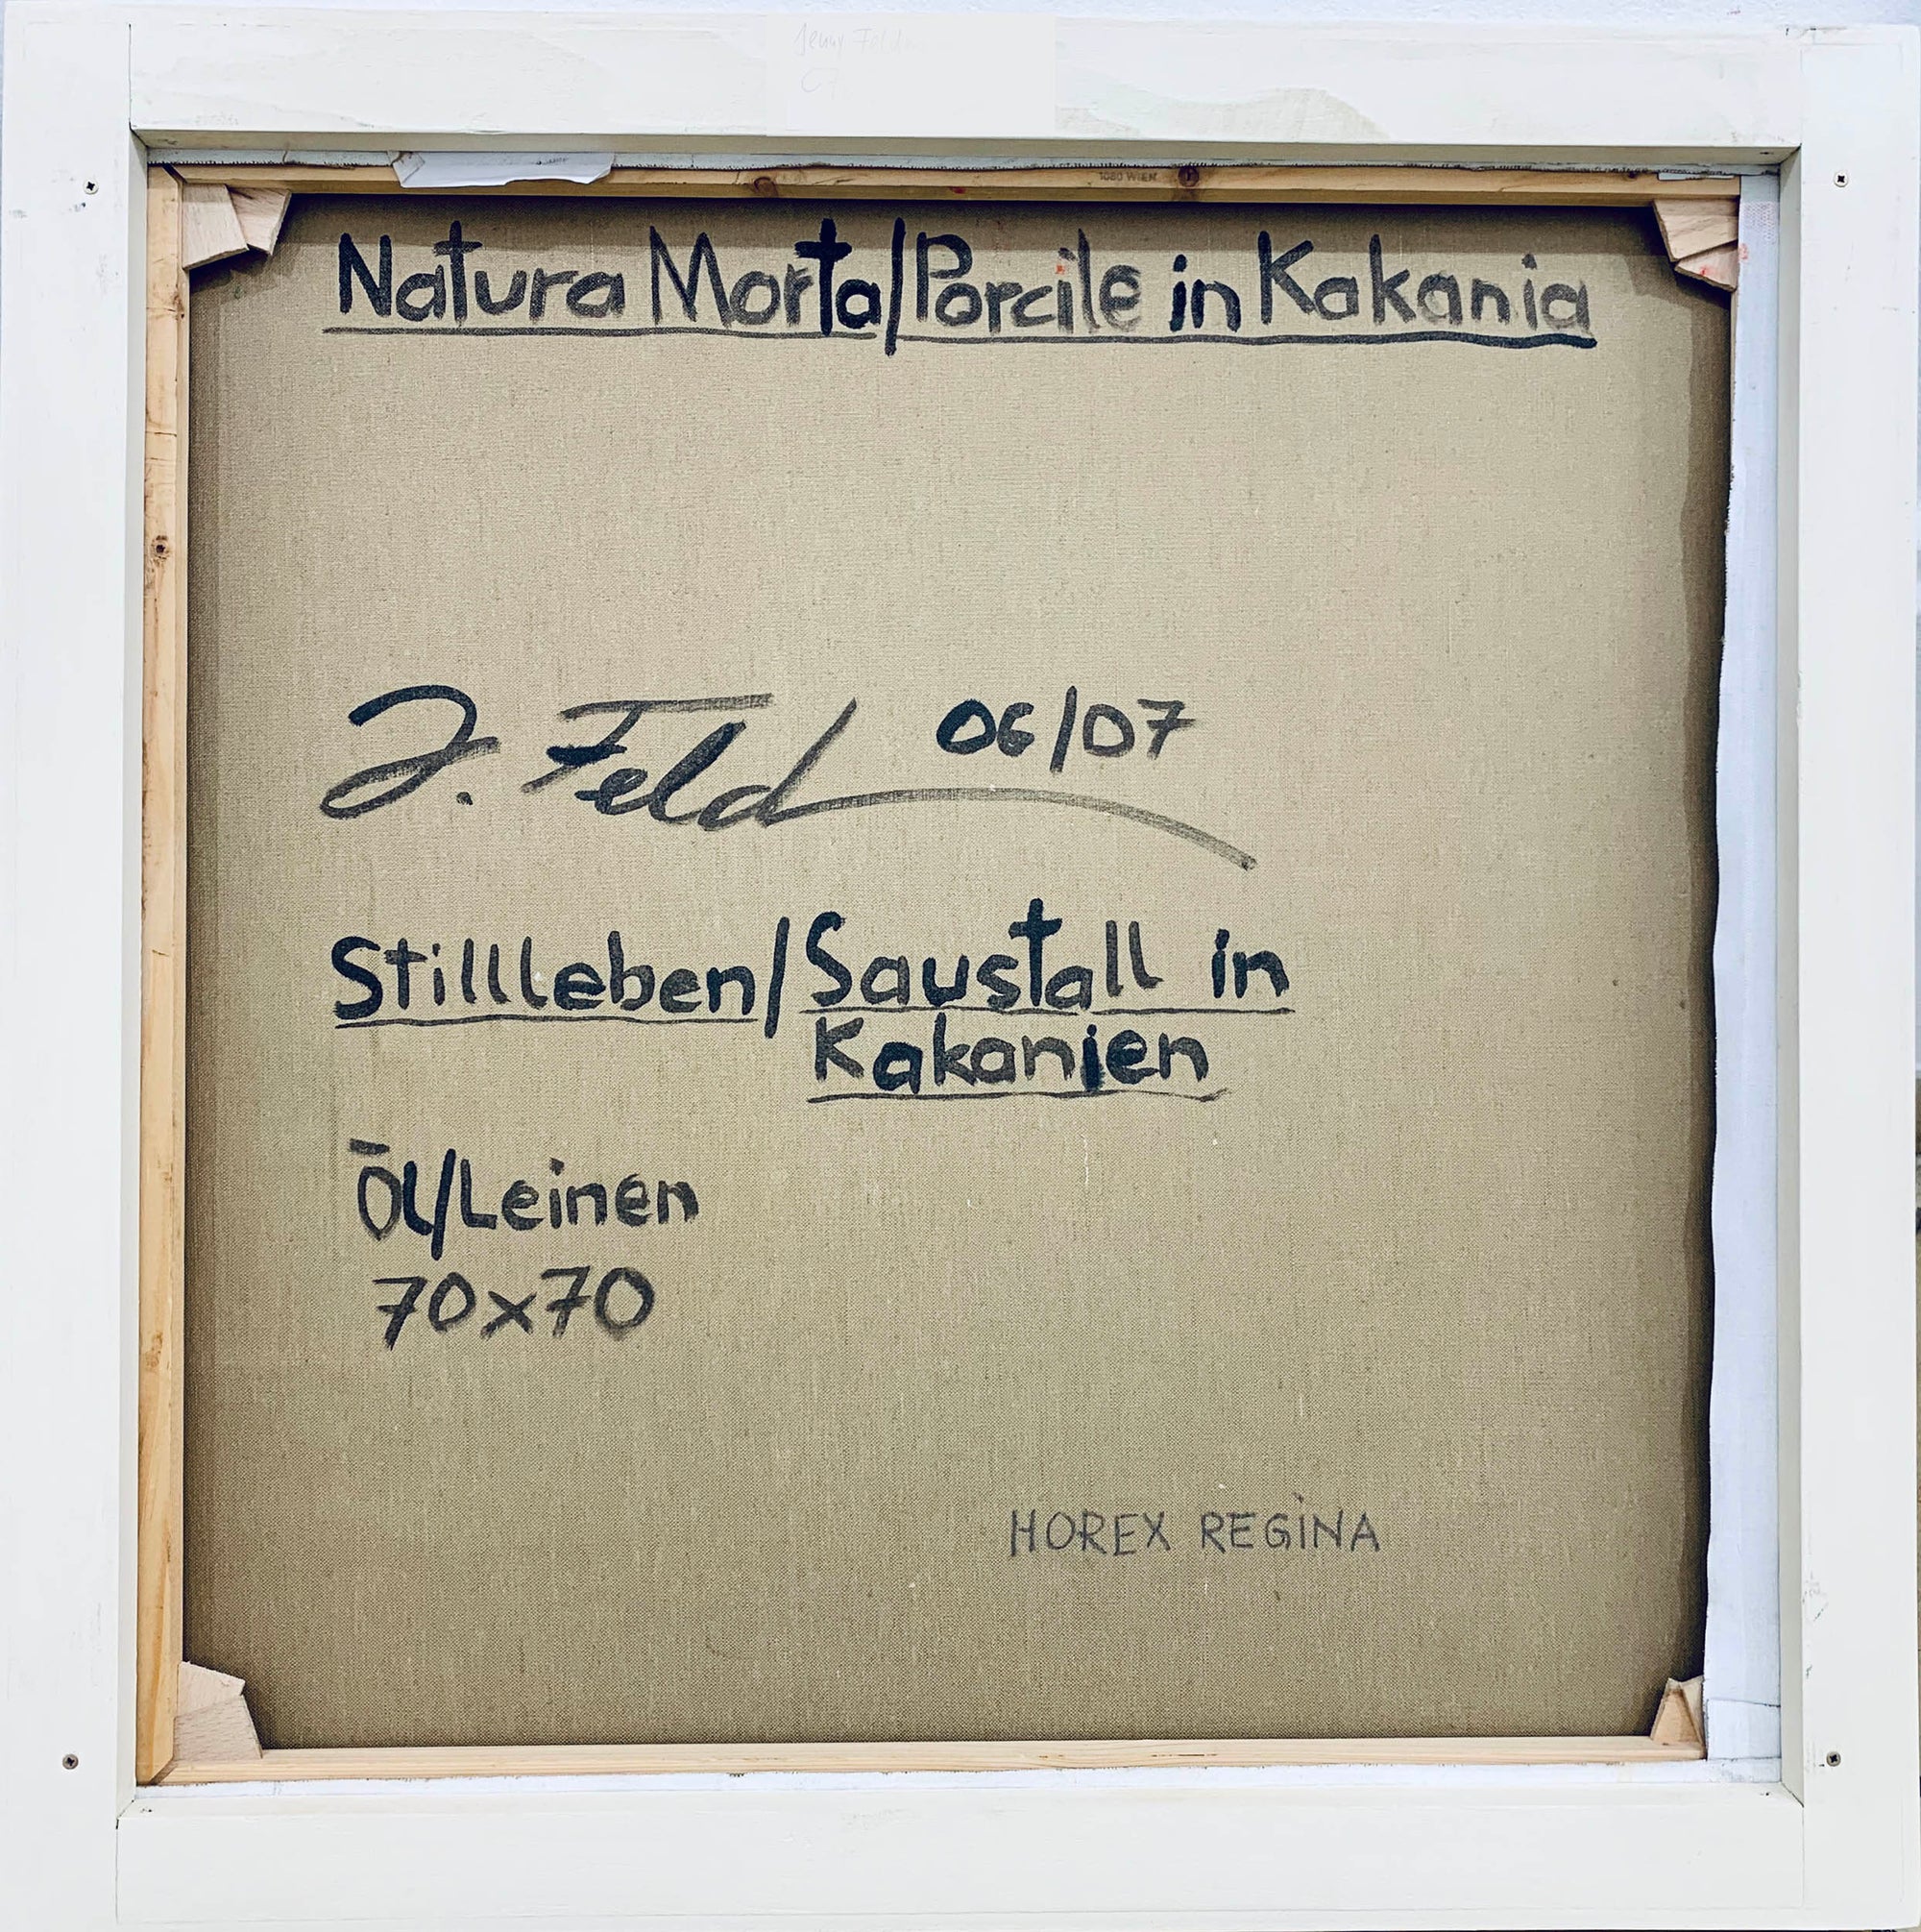 Jenny Feld
1080 WIEN
Natura Morta/Porcile in Kakania
J. Feld 06/07
Stillleben/Saustall in
Kakanien
Öl/Leinen
70x70
HOREX REGINA